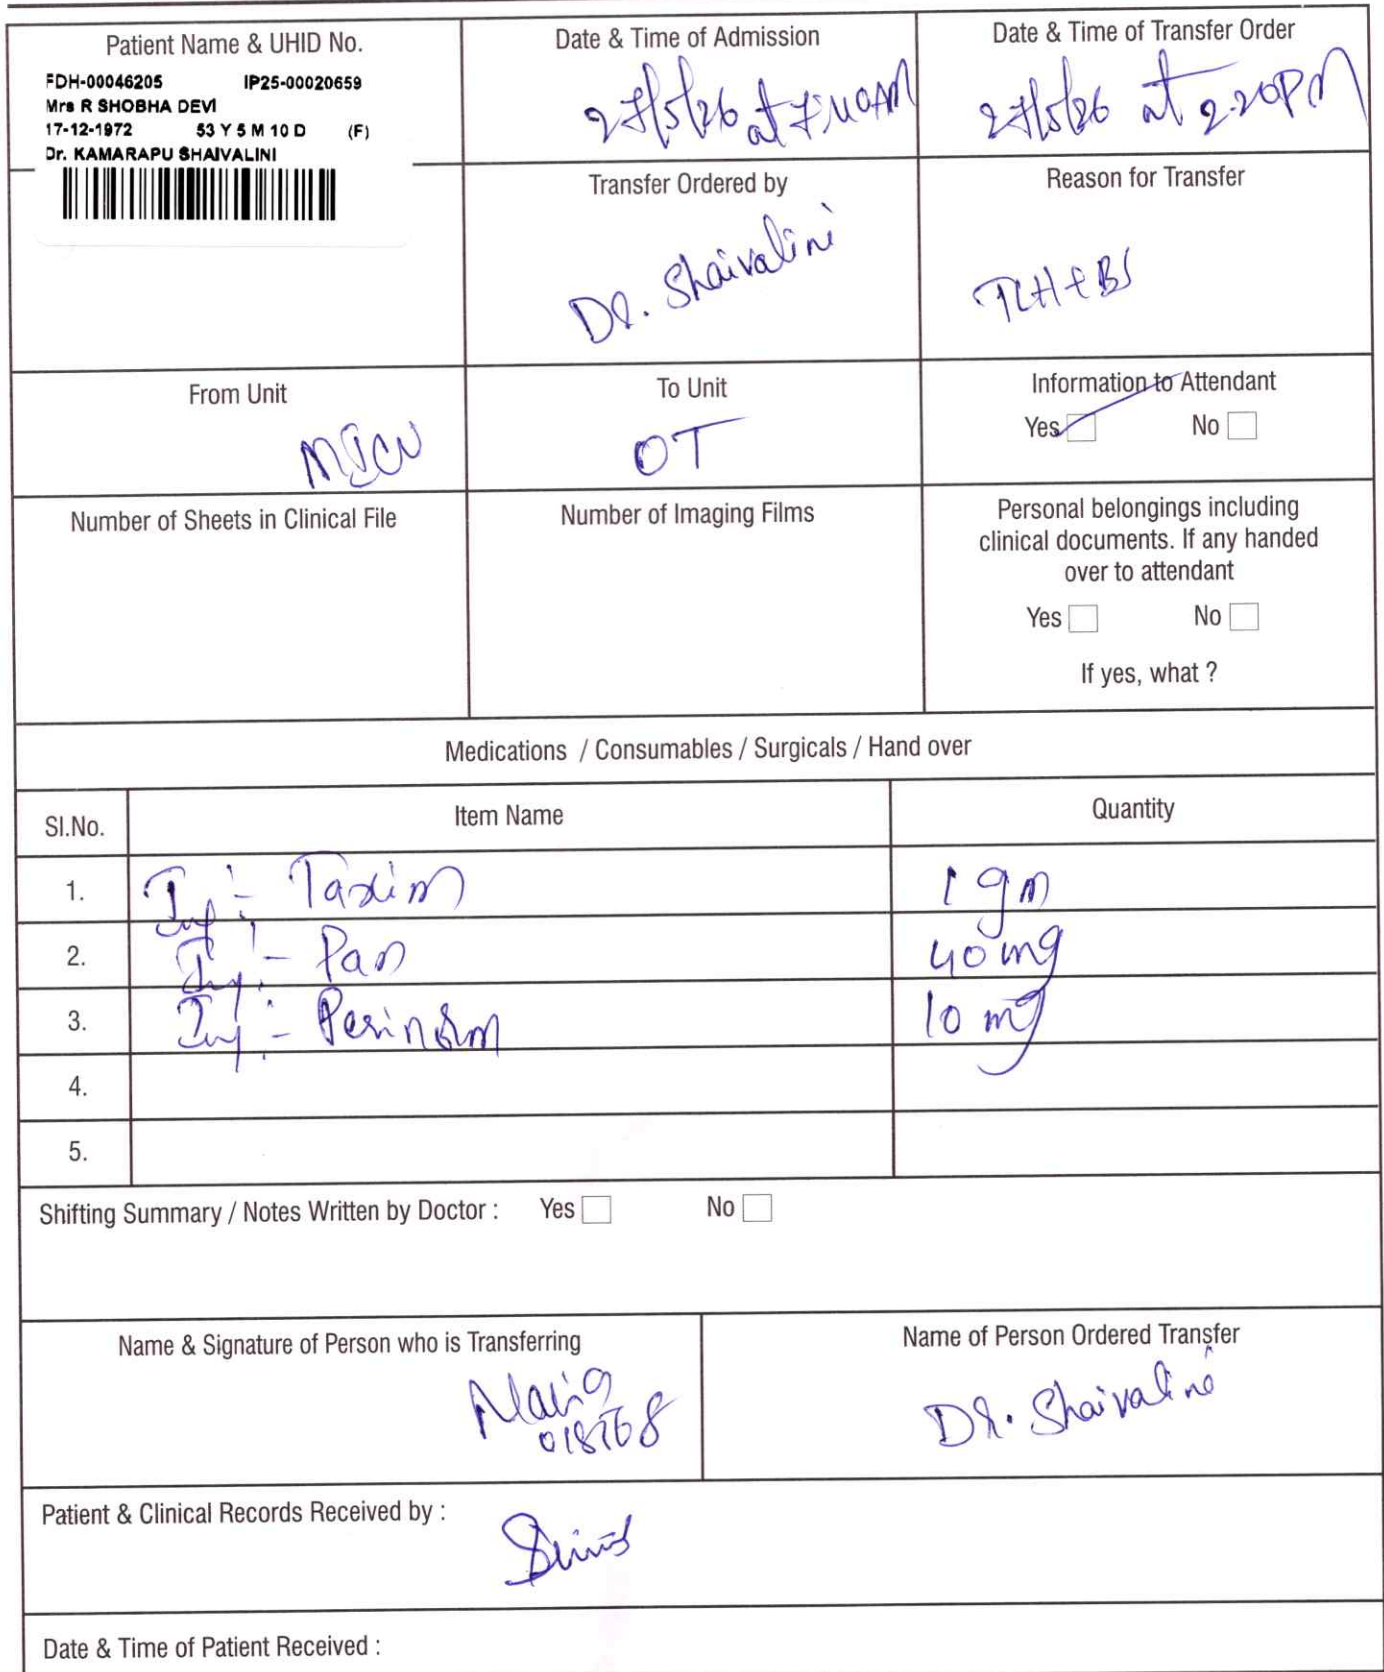 Patient Name & UHID No.
FDH-00046205 IP25-00020659
Mrs R SHOBHA DEVI
17-12-1972 53 Y 5 M 10 D (F)
Dr. KAMARAPU SHAIVALINI
Date & Time of Admission
27/5/26 at 7:40AM
Date & Time of Transfer Order
27/5/26 at 2.20PM
Transfer Ordered by
DR. Shaivalini
Reason for Transfer
TLH+BS
From Unit
MICU
To Unit
OT
Information to Attendant
Yes No
Number of Sheets in Clinical File
Number of Imaging Films
Personal belongings including
clinical documents. If any handed
over to attendant
Yes No
If yes, what ?
Medications / Consumables / Surgicals / Hand over
Sl.No. Item Name Quantity
1. Inj:- Taxim 1 gm
2. Inj:- Pan 40 mg
3. Inj:- Perinorm 10 mg
4.
5.
Shifting Summary / Notes Written by Doctor : Yes No
Name & Signature of Person who is Transferring
Name of Person Ordered Transfer
DR. Shaivalini
Patient & Clinical Records Received by :
Date & Time of Patient Received :